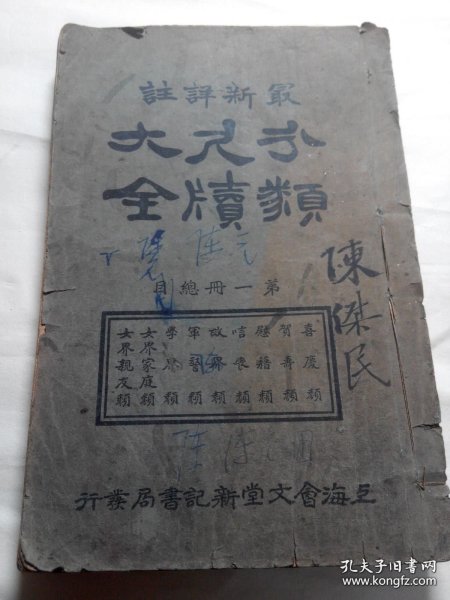 最新詳註
分類尺牘大全
第一冊總目
喜慶類
賀壽類
慰藉類
唁喪類
政界類
軍警類
學界類
女界家庭類
女界親友類
陳傑民
上海會文堂新記書局發行
孔夫子旧书网
www.kongfz.com